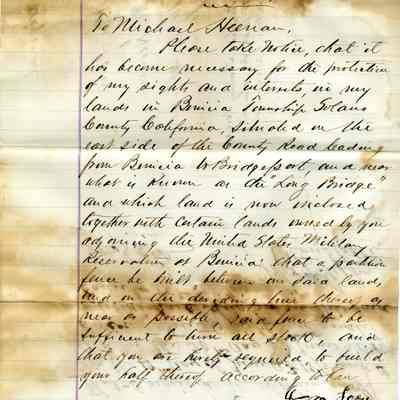 To Michael Heenan,
Please take notice, that it
has become necessary for the protection
of my rights and interests, in my
lands in Benicia Township Solano
County California, situated on the
east side of the County Road leading
from Benicia to Bridgeport, and near
what is known as the "Long Bridge"
and which land is now inclosed
together with certain lands owned by you
adjoining the United States Military
Reservation at Benicia: that a partition
fence be built between our said lands,
and on the dividing line thereof as
near as possible, said fence to be
sufficient to turn all stock, and
that you are hereby required to build
your half thereof according to law